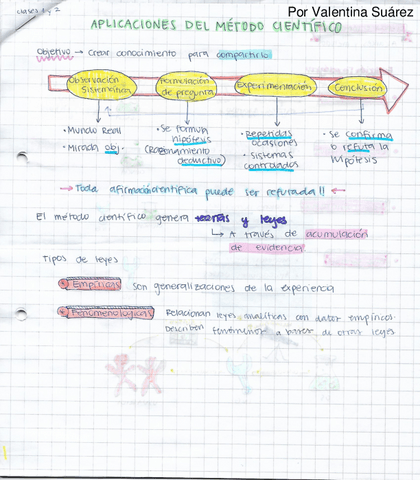 clases 1 y 2
Por Valentina Suárez
APLICACIONES DEL MÉTODO CIENTÍFICO
Objetivo → Crear conocimiento para compartirlo
Observación Sistemática
Formulación de pregunta
Experimentación
Conclusión
• Mundo Real
• Mirada obj.
• Se formula hipótesis
(Razonamiento deductivo)
• Repetidas ocasiones
• Sistemas controlados
• Se confirma o refuta la hipótesis
→ Toda afirmación científica puede ser refutada!! ←
El método científico genera teorías y leyes
↳ A través de acumulación
de evidencia
Tipos de leyes
• Empíricas son generalizaciones de la experiencia
• Fenomenológicas Relacionan leyes analíticas con datos empíricos.
Describen fenómenos a base de otras leyes